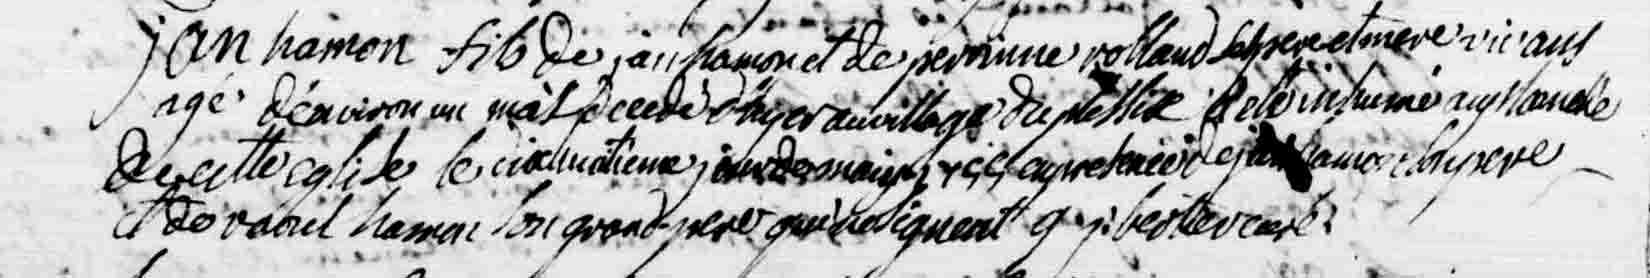 jan hamon fils de jan hamon et de perrinne rolland ses pere et mere vivans
agé d'environ un mois decedé d'hyer au village du plessix a eté inhumé au
de cette eglise le jour de may en presence de jan hamon son pere
et de raoul hamon son grand-pere qui ne signent